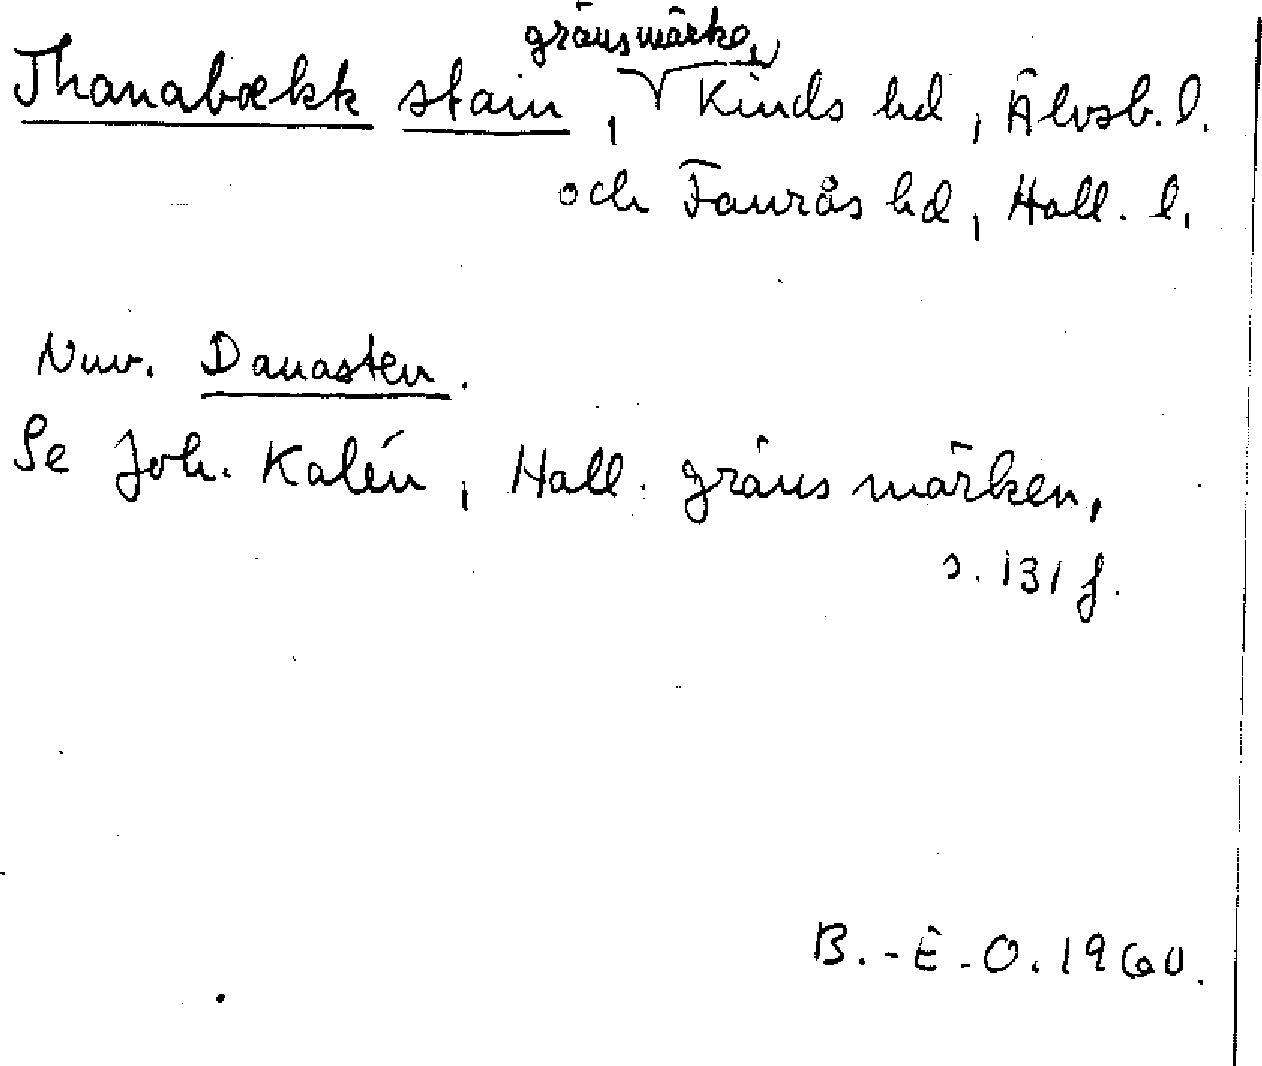 gränsmärke,
Thanabækk stain, Kinds hd, Älvsb. l.
och Faurås hd, Hall. l.
Nuv. Danasten.
Se Joh. Kalén, Hall. gränsmärken,
s. 131 f.
B.-E.O. 1960.